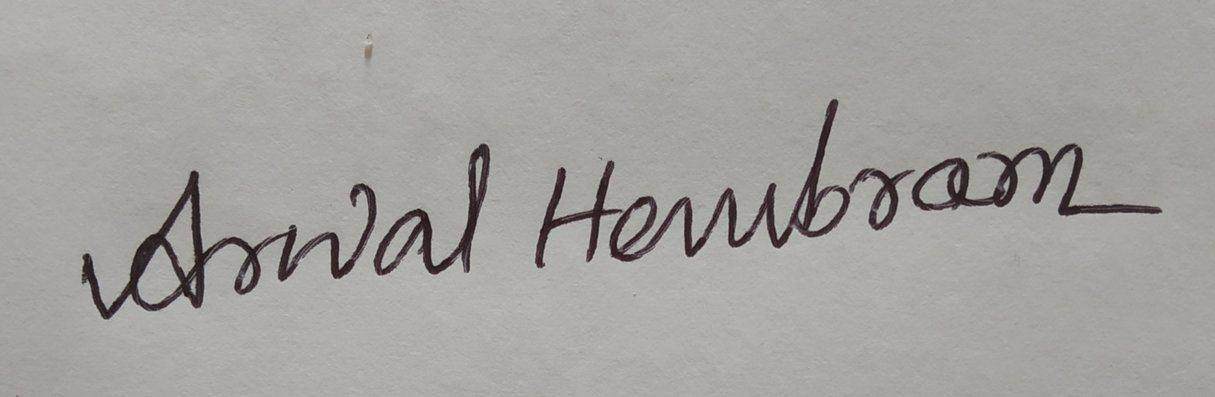 Arwal Hembram